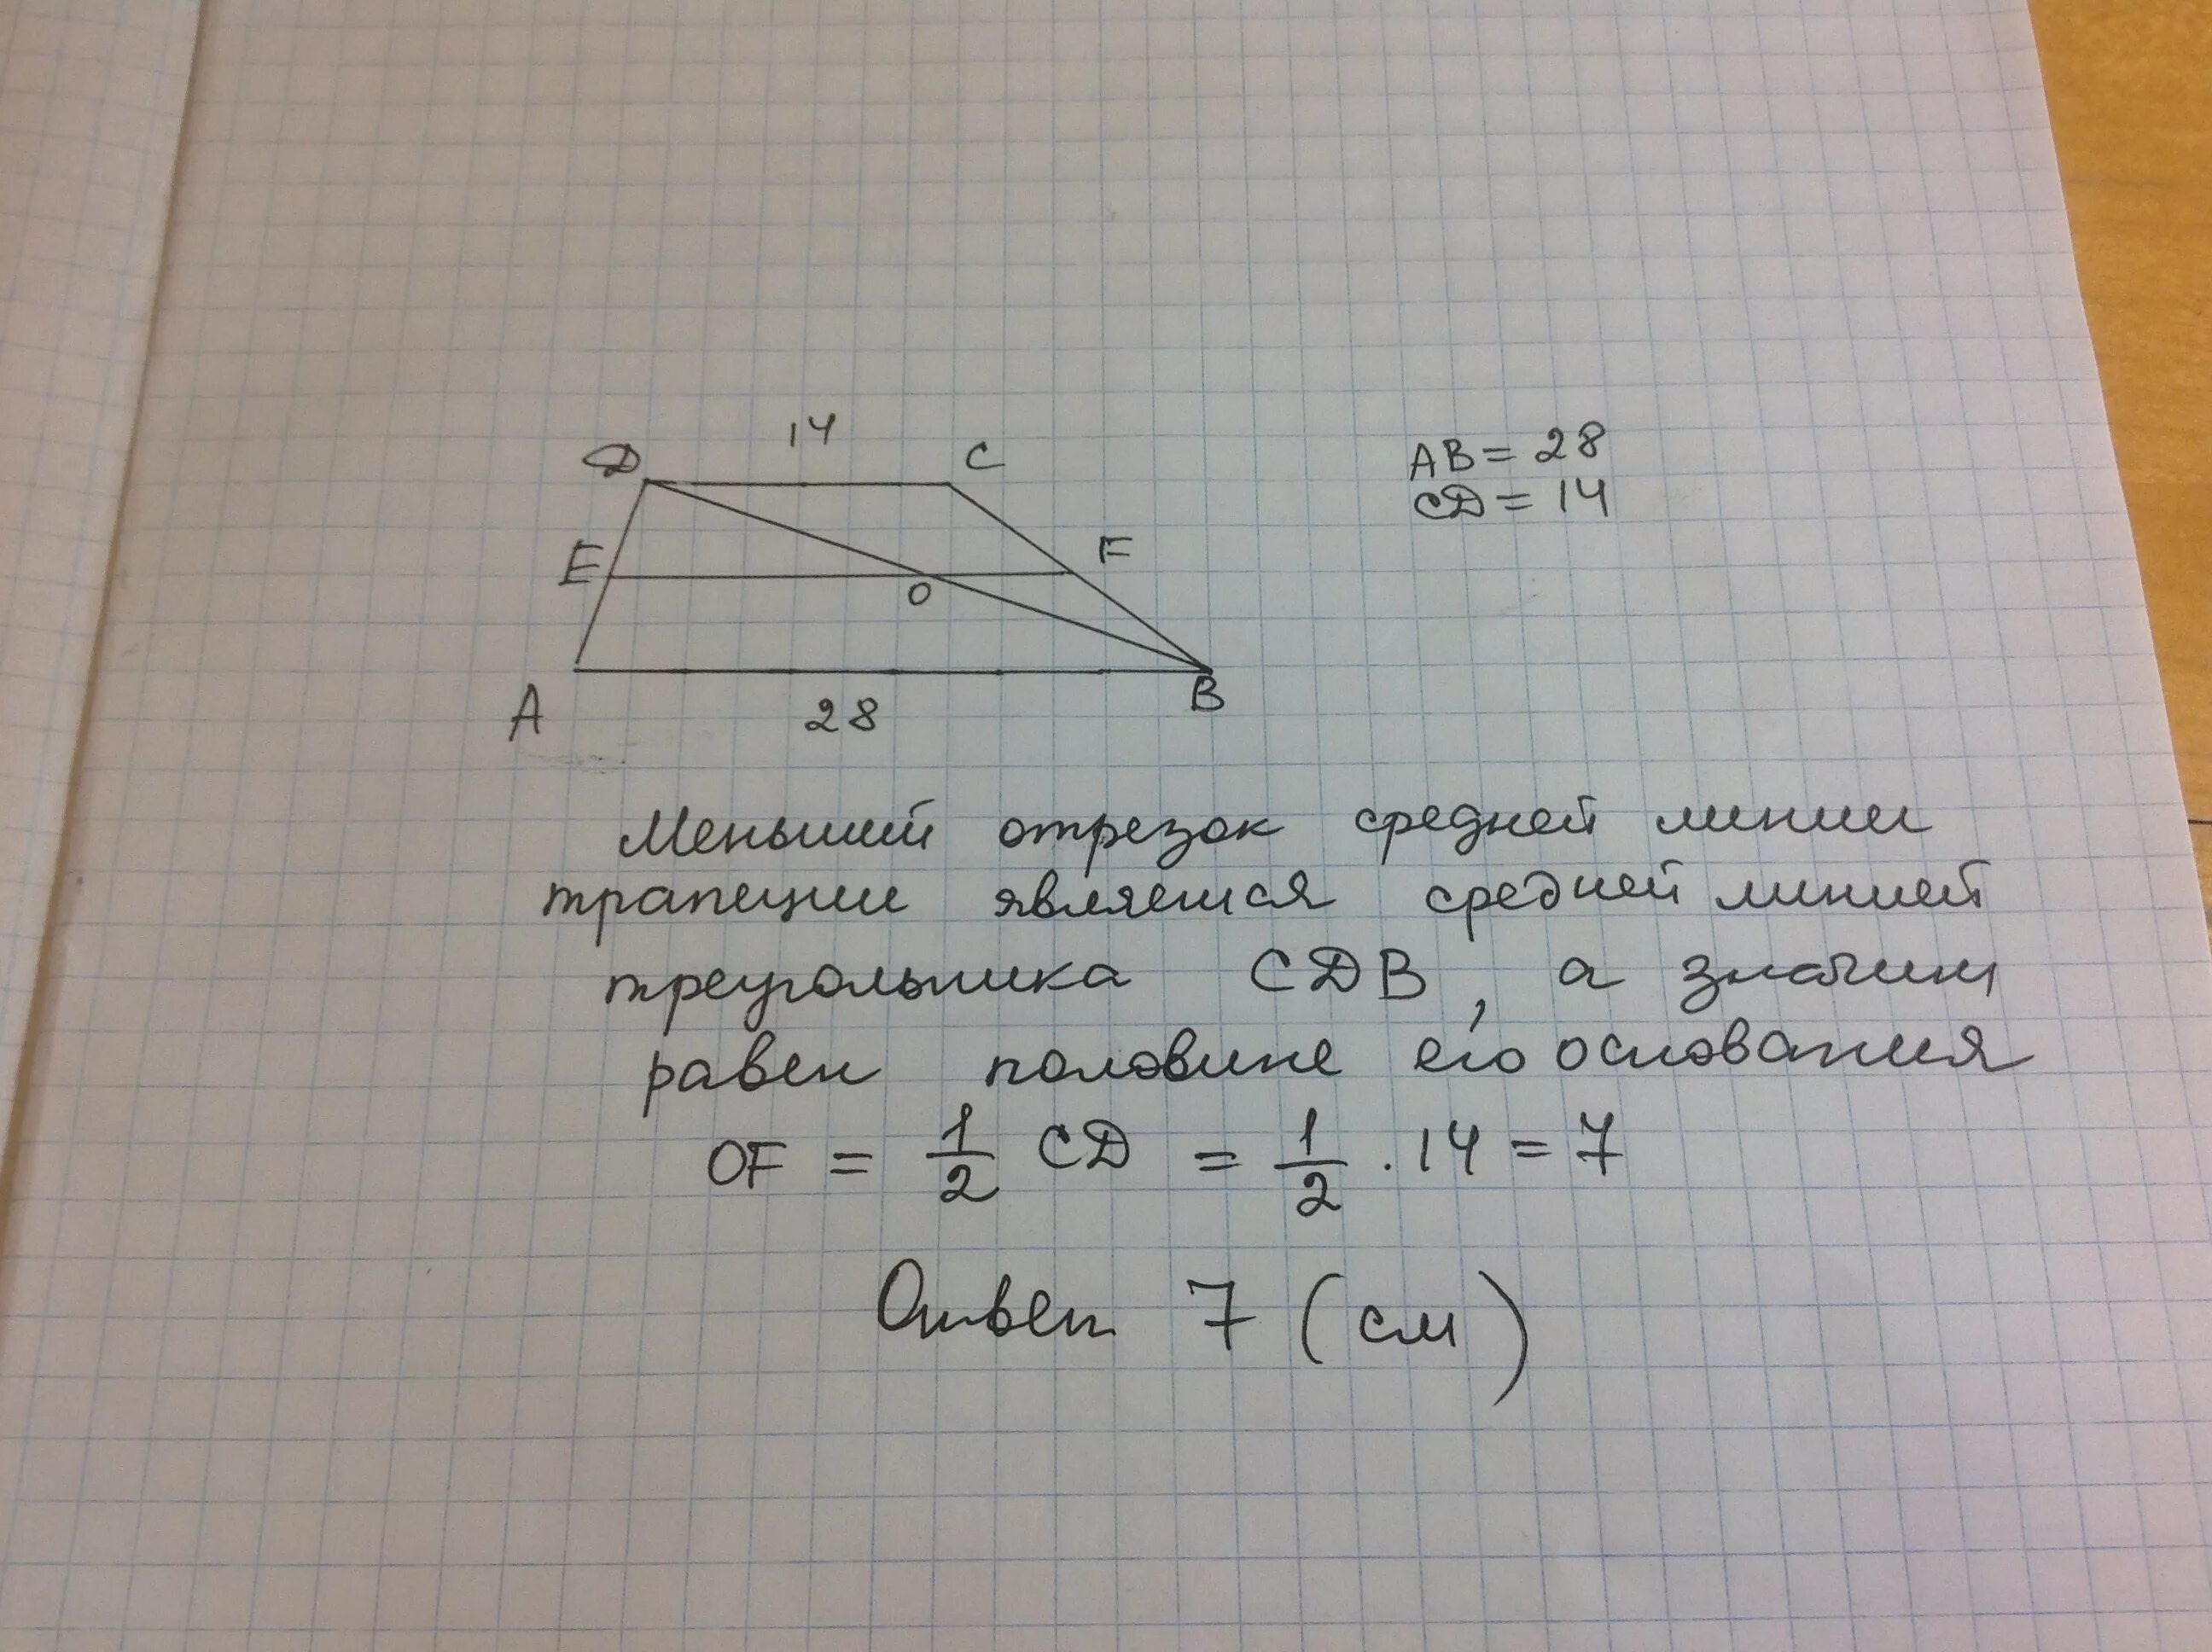 14
D C
AB = 28
CD = 14
E F
O
A B
28
Меньший отрезок средней линии
трапеции является средней линией
треугольника CDB, а значит
равен половине его основания
OF = 1/2 CD = 1/2 · 14 = 7
Ответ 7 (см)